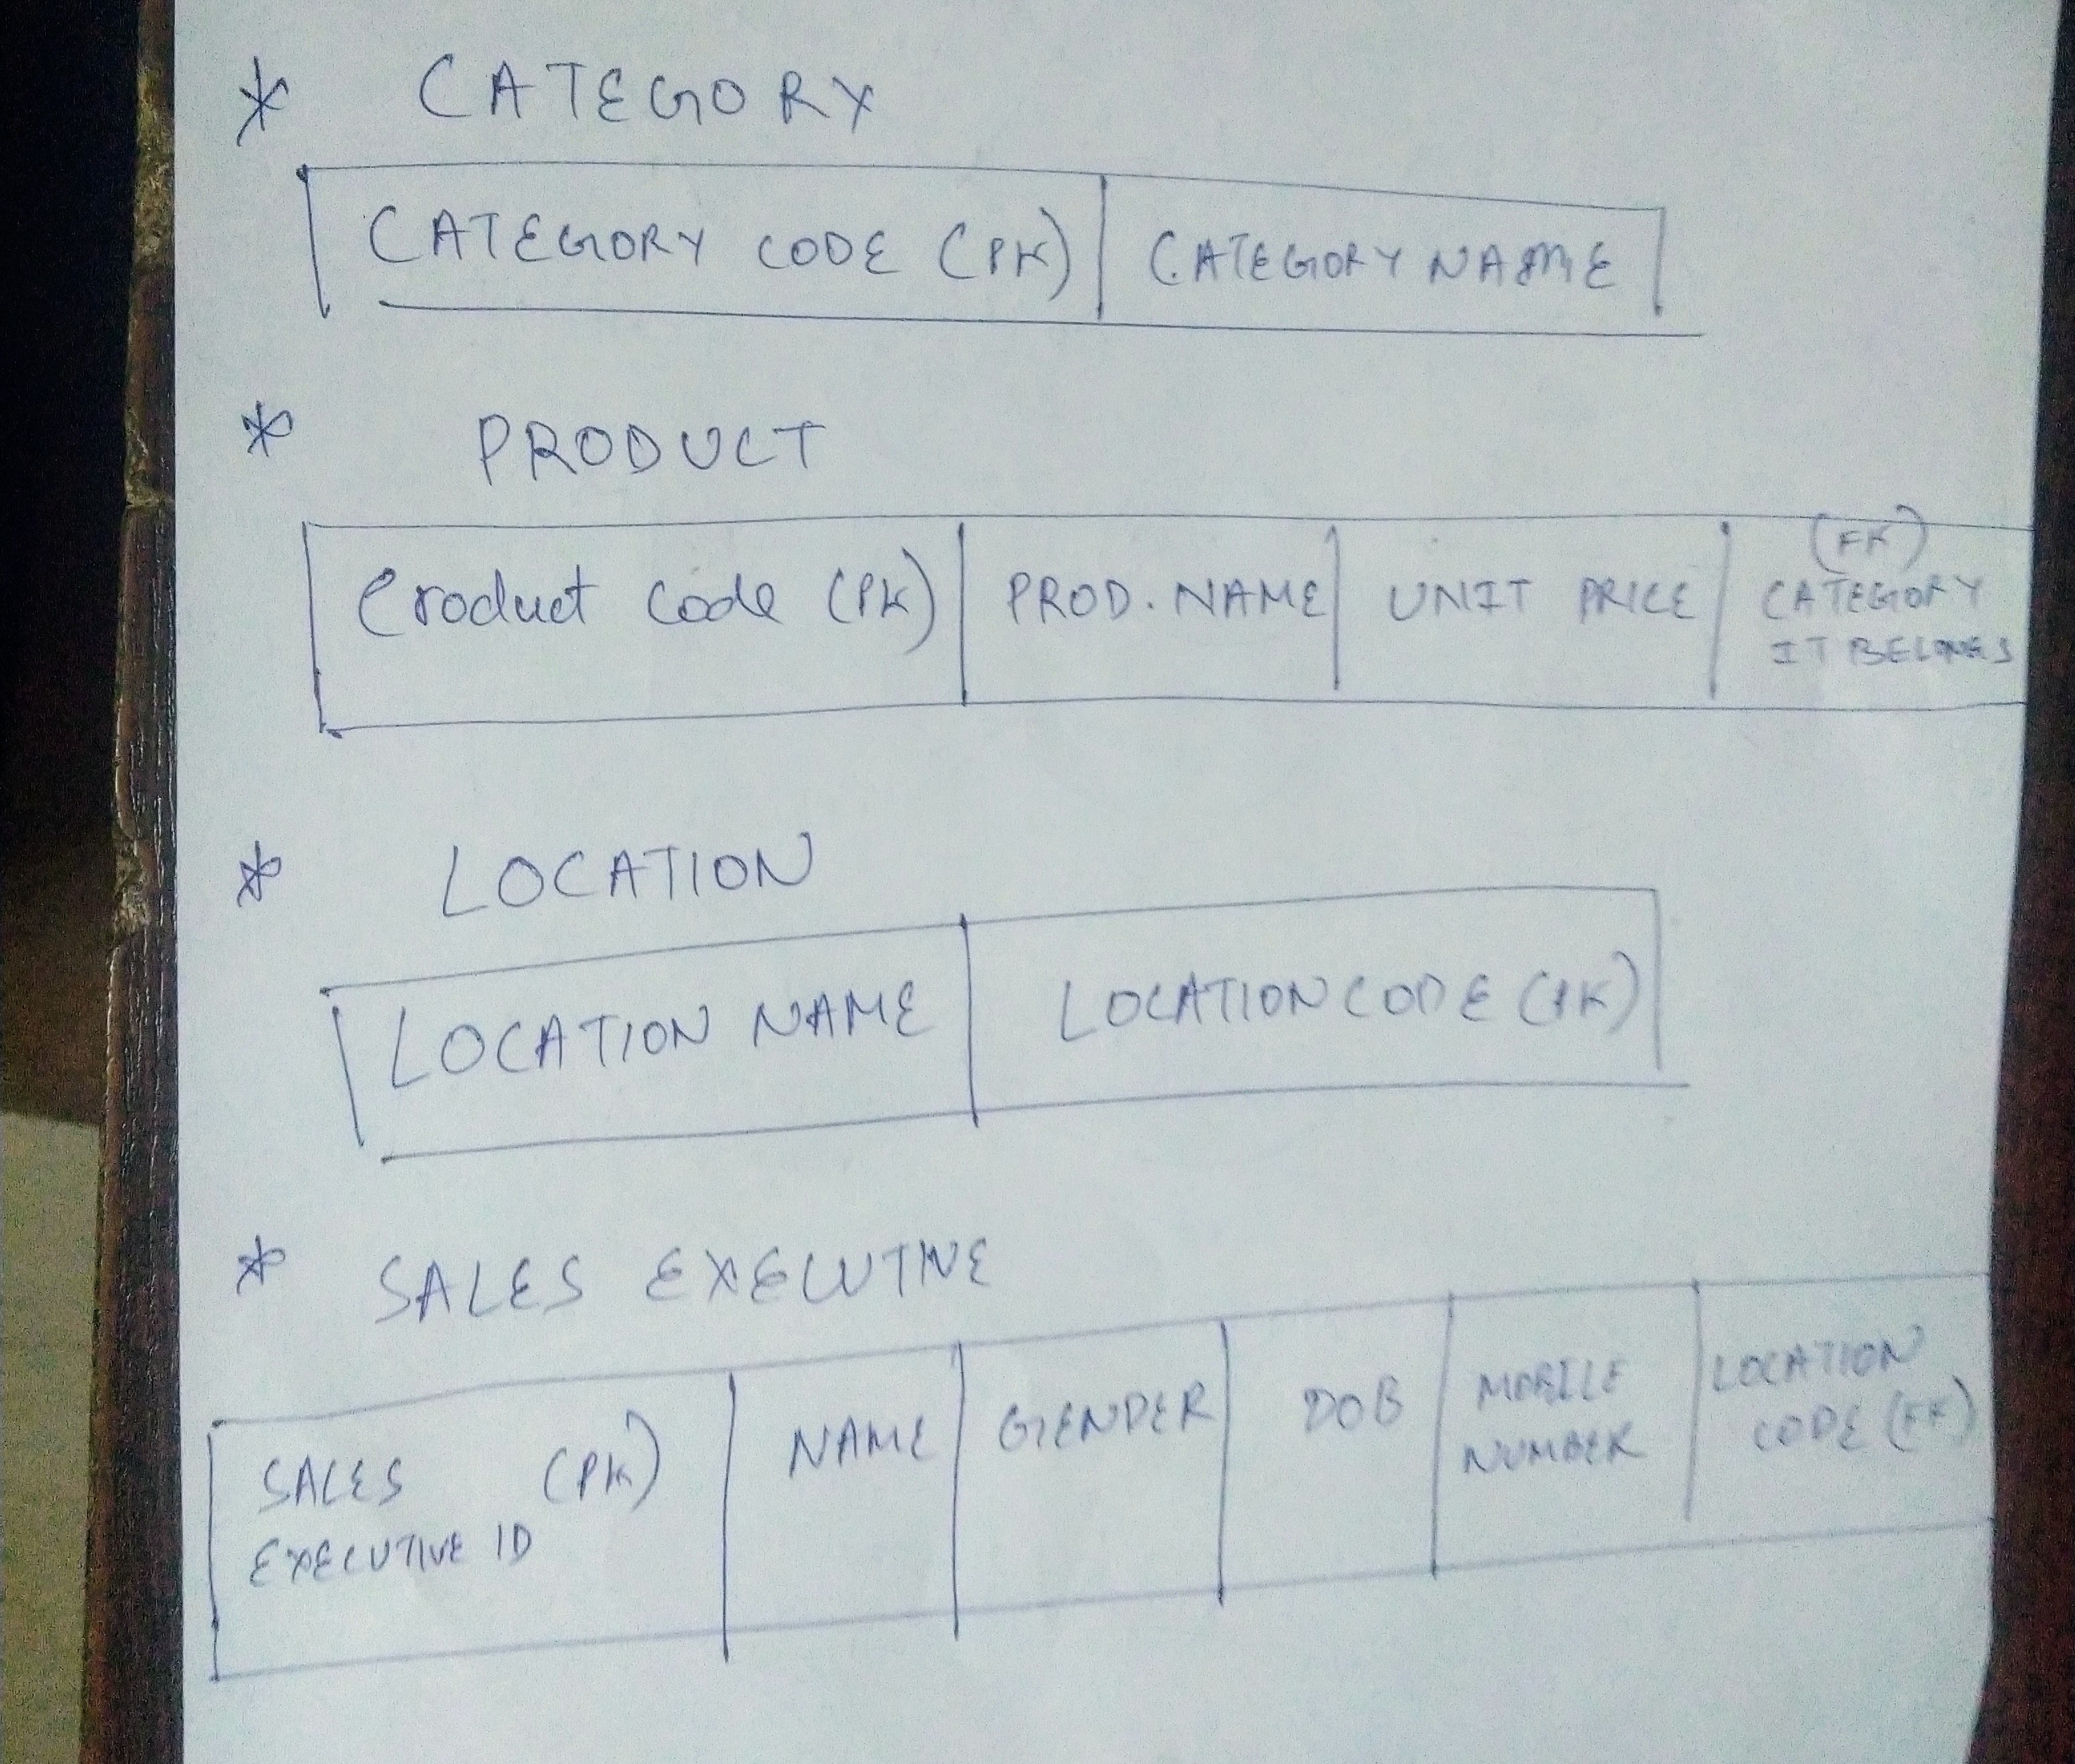 * CATEGORY
CATEGORY CODE (PK) CATEGORY NAME
* PRODUCT
Product Code (PK) PROD. NAME UNIT PRICE (FK)
CATEGORY
IT BELONGS
* LOCATION
LOCATION NAME LOCATION CODE (PK)
* SALES EXECUTIVE
SALES (PK)
EXECUTIVE ID
NAME
GENDER
DOB
MOBILE
NUMBER
LOCATION
CODE (FK)